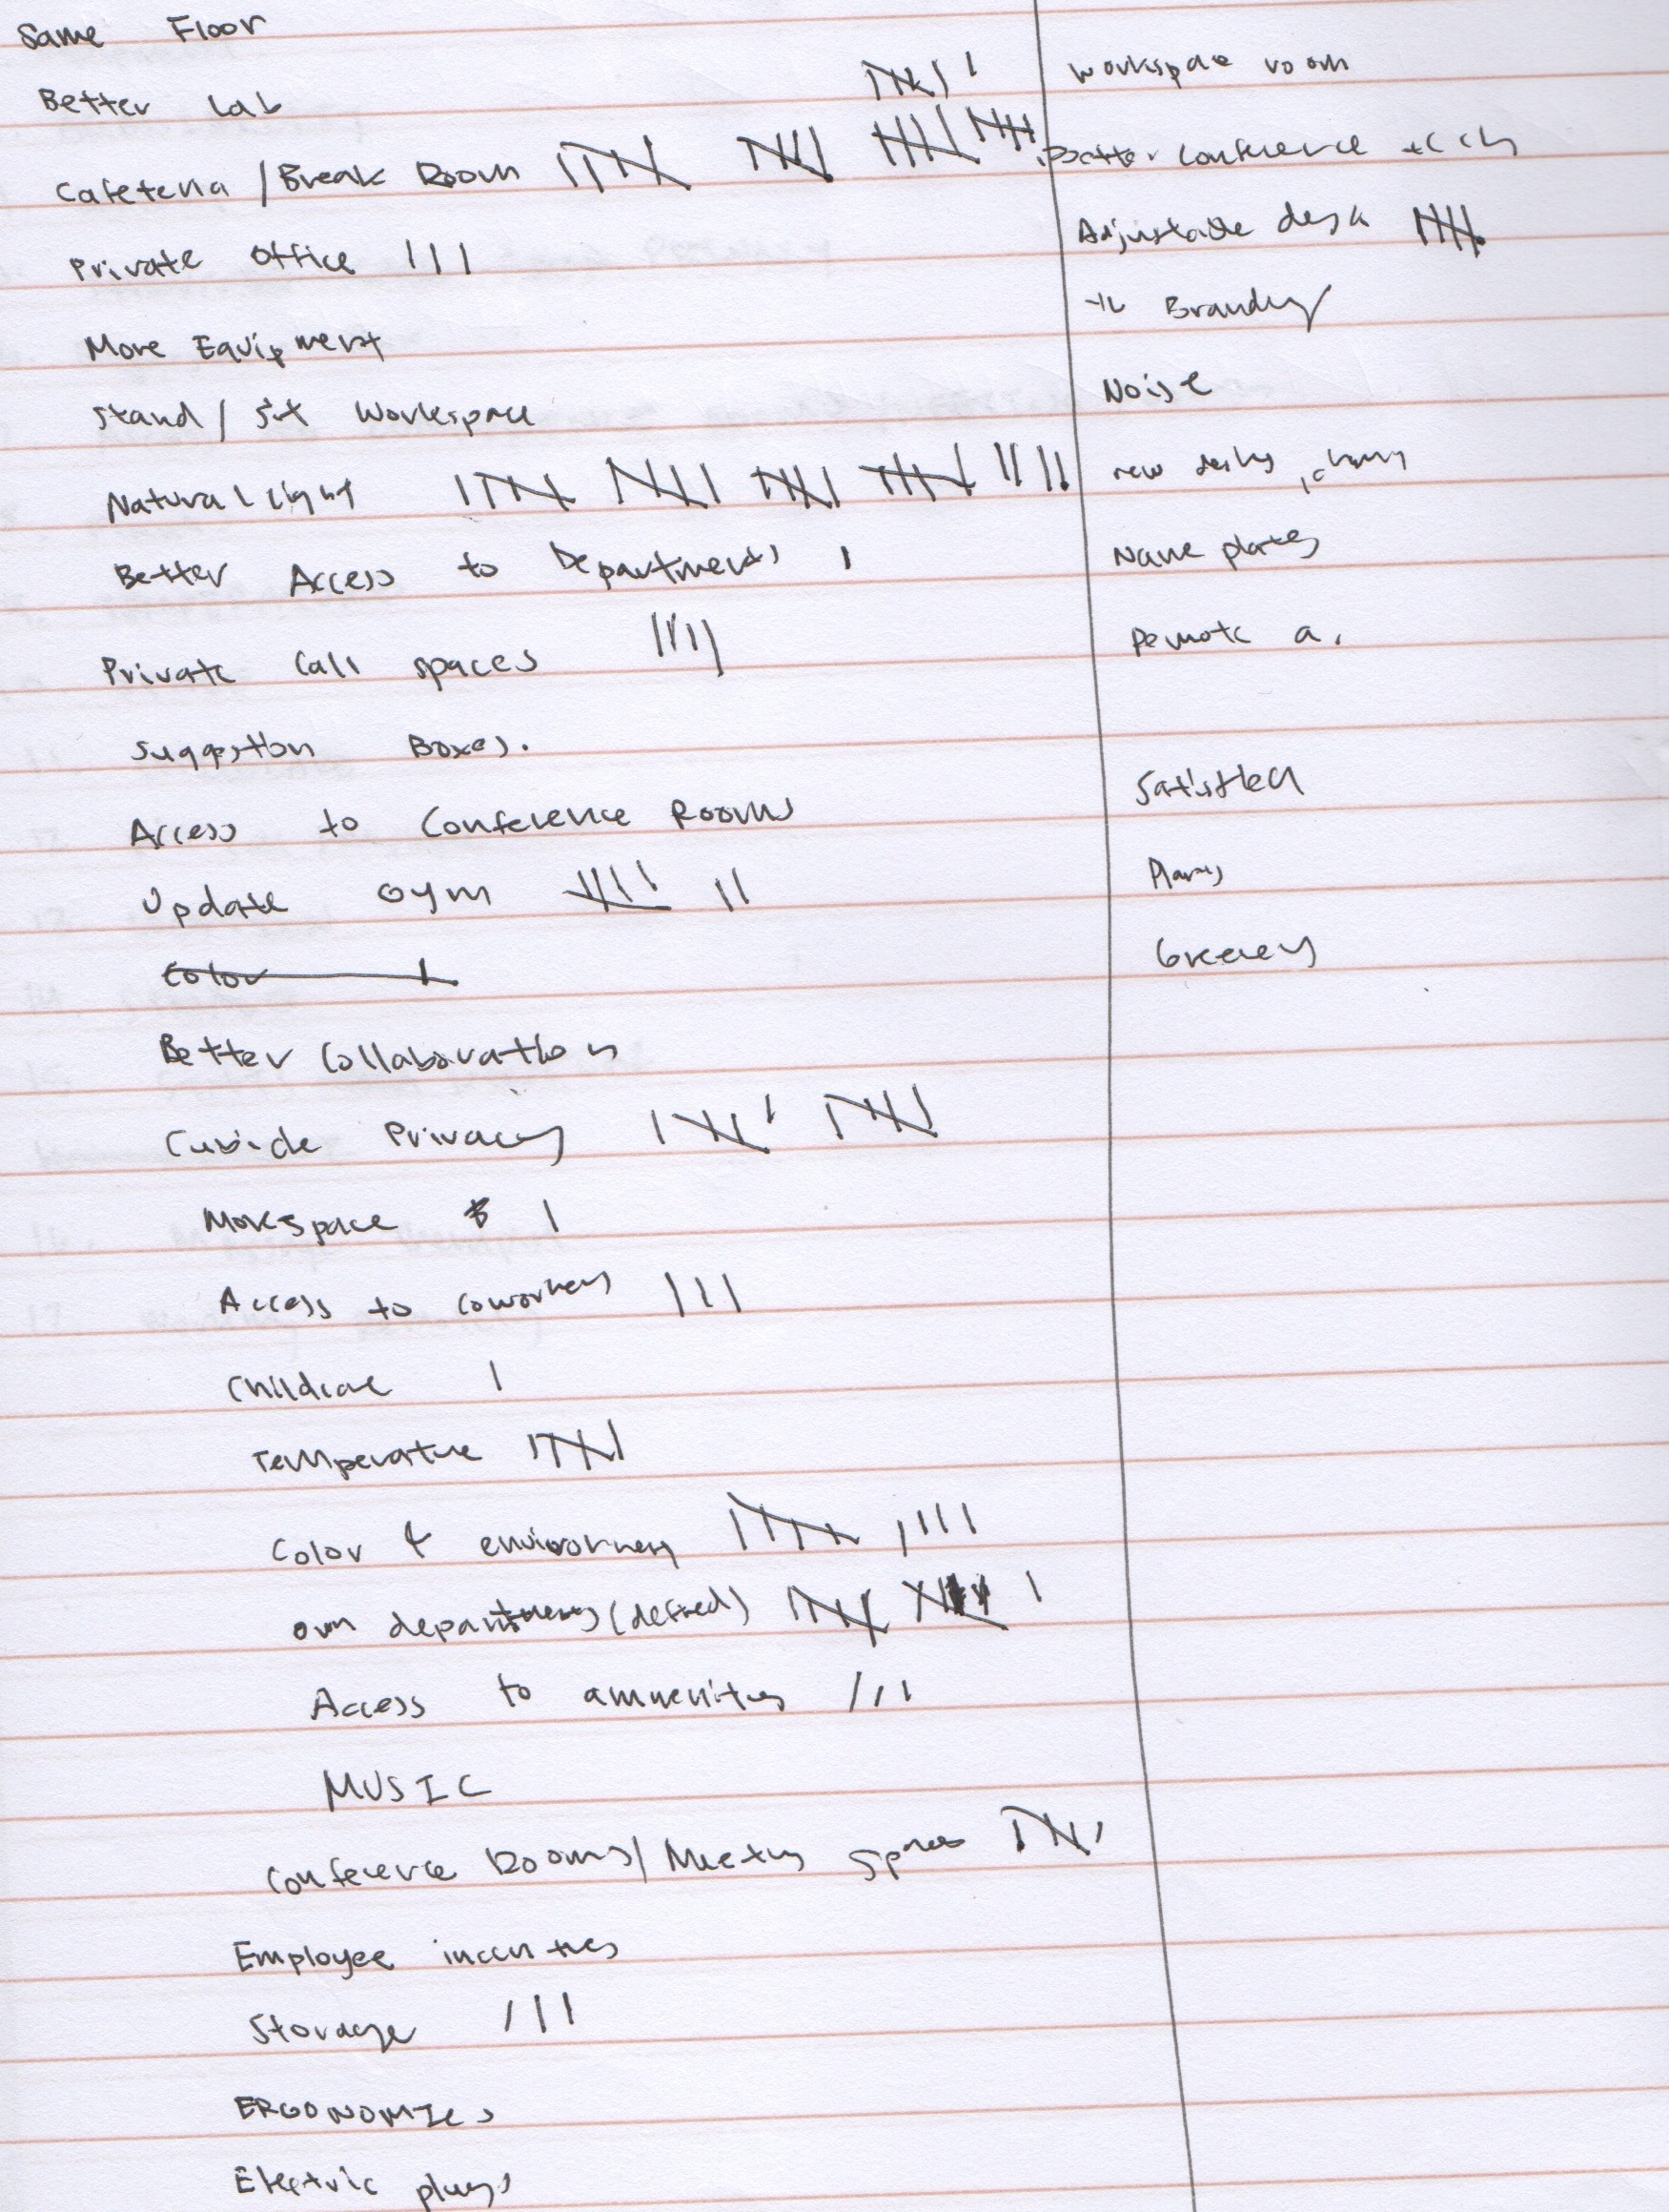 Same Floor
Better Lab
Cafeteria / Break Room
Private Office
More Equipment
Stand / Sit Workspace
Natural Light
Better Access to Departments
Private Call spaces
Suggestion Boxes.
Access to Conference Rooms
Update Gym
Color
Better Collaboration
Cubicle Privacy
More space
Access to coworkers
Childcare
Temperature
Color & environment
own departments (defined)
Access to ammenities
MUSIC
Conference Rooms / Meeting spaces
Employee incentives
Storage
ERGONOMICS
Electric plugs
workspace room
Better conference tech
Adjustable desk
Branding
Noise
new desks, chairs
Name plates
Remote
Satisfied
Plants
Greenery